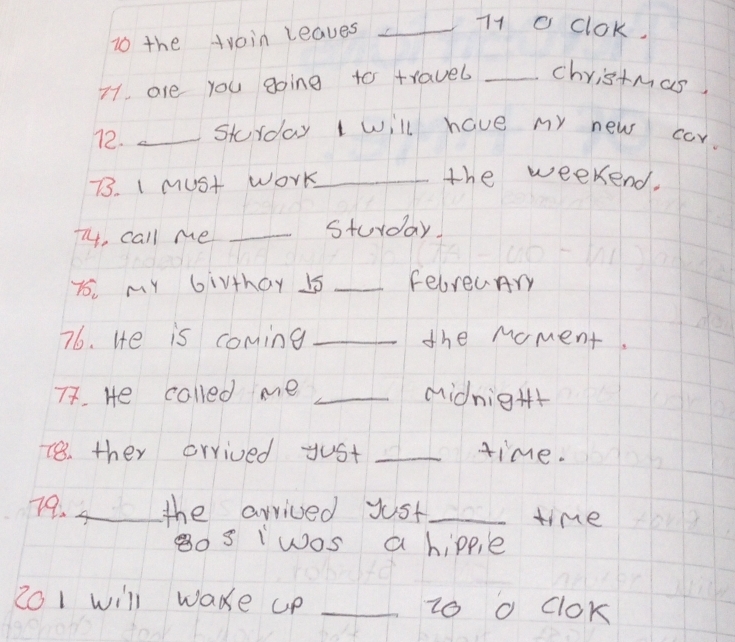 10 the train leaves ____ 11 o clok.
11. are you going to travel ____ christmas.
12. ____ Sturday I will have my new car.
13. I must work ____ the weekend.
14. call me ____ Sturday.
15. my birthay is ____ Februeary
16. He is coming ____ the moment.
17. He called me ____ midnight
18. they arrived just ____ time.
19. ____ the arrived just ____ time
80s i was a hippie
20 I will wake up ____ 10 o clok